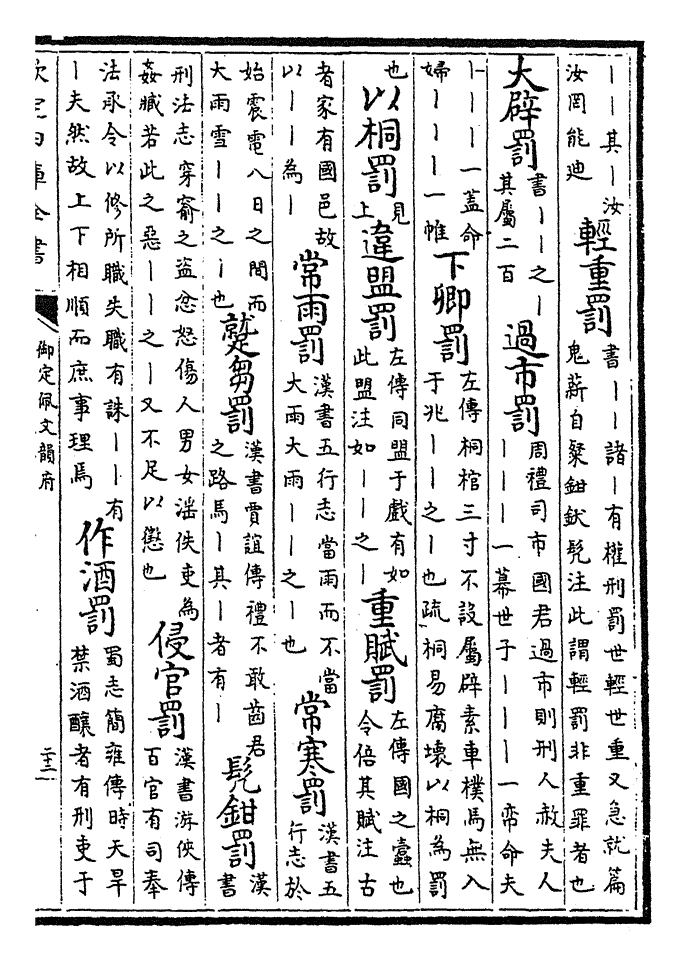 丨丨其丨汝
汝罔能迪
輕重罰
書丨丨諸丨有權刑罰世輕世重又急就篇
鬼薪白粲鉗釱髠注此謂輕罰非重罪者也
大辟罰
書丨丨之丨
其屬二百
過市罰
周禮司市國君過市則刑人赦夫人
丨丨丨一幕世子丨丨丨一帟命夫
丨丨丨一蓋命
婦丨丨丨一帷
下卿罰
左傳桐棺三寸不設屬辟素車樸馬無入
于兆丨丨之丨也疏桐易腐壞以桐為罰
也
以桐罰
見
上
違盟罰
左傳同盟于戲有如
此盟注如丨丨之丨
重賦罰
左傳國之蠹也
令倍其賦注古
者家有國邑故
以丨丨為丨
常雨罰
漢書五行志當雨而不當
大雨大雨丨丨之丨也
常寒罰
漢書五
行志於
始震電八日之間而
大雨雪丨丨之丨也
蹵芻罰
漢書賈誼傳禮不敢齒君
之路馬丨其丨者有丨
髠鉗罰
漢
書
刑法志穿窬之盜忿怒傷人男女淫佚吏為
姦臧若此之惡丨丨之丨又不足以懲也
侵官罰
漢書游俠傳
百官有司奉
法承令以修所職失職有誅丨丨有
丨夫然故上下相順而庶事理焉
作酒罰
蜀志簡雍傳時天旱
禁酒釀者有刑吏于
欽定四庫全書
御定佩文韻府
二十三